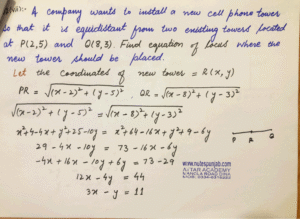 A company wants to install a new cell phone tower
so that it is equidistant from two existing towers located
at P(2,5) and Q(8,3). Find equation of locus where the
new tower should be placed.
Let the coordinates of new tower = R(x,y)
PR = √(x-2)²+(y-5)² , QR = √(x-8)²+(y-3)²
√(x-2)²+(y-5)² = √(x-8)²+(y-3)²
x²+4-4x+y²+25-10y = x²+64-16x+y²+9-6y
29-4x-10y = 73-16x-6y
P R Q
-4x+16x-10y+6y = 73-29
www.notespunjab.com
AVTAR ACADEMY
12x-4y = 44
3x-y = 11